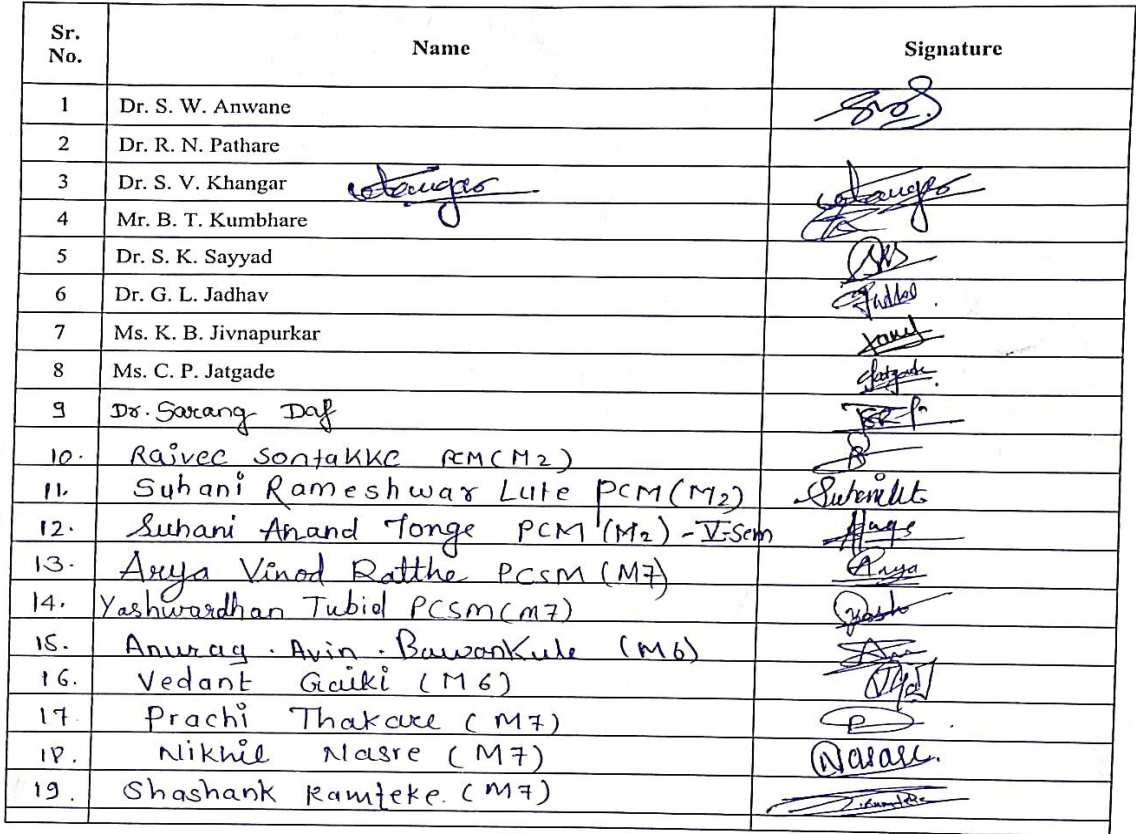 Sr. No. Name Signature
1 Dr. S. W. Anwane
2 Dr. R. N. Pathare
3 Dr. S. V. Khangar
4 Mr. B. T. Kumbhare
5 Dr. S. K. Sayyad
6 Dr. G. L. Jadhav
7 Ms. K. B. Jivnapurkar
8 Ms. C. P. Jatgade Jatgade
9 Dr. Sarang Daf
10. Rajvee Sontakke PCM (M2)
11. Suhani Rameshwar Lute PCM (M2)
12. Suhani Anand Tonge PCM (M2) - V-Sem
13. Arya Vinod Ratthe PCSM (M7) Arya
14. Yashwardhan Tubid PCSM (M7) Yash
15. Anurag . Avin . Bawankule (M6)
16. Vedant Gaiki (M6)
17. Prachi Thakare (M7)
18. Nikhil Nasre (M7)
19. Shashank Ramteke. (M7)